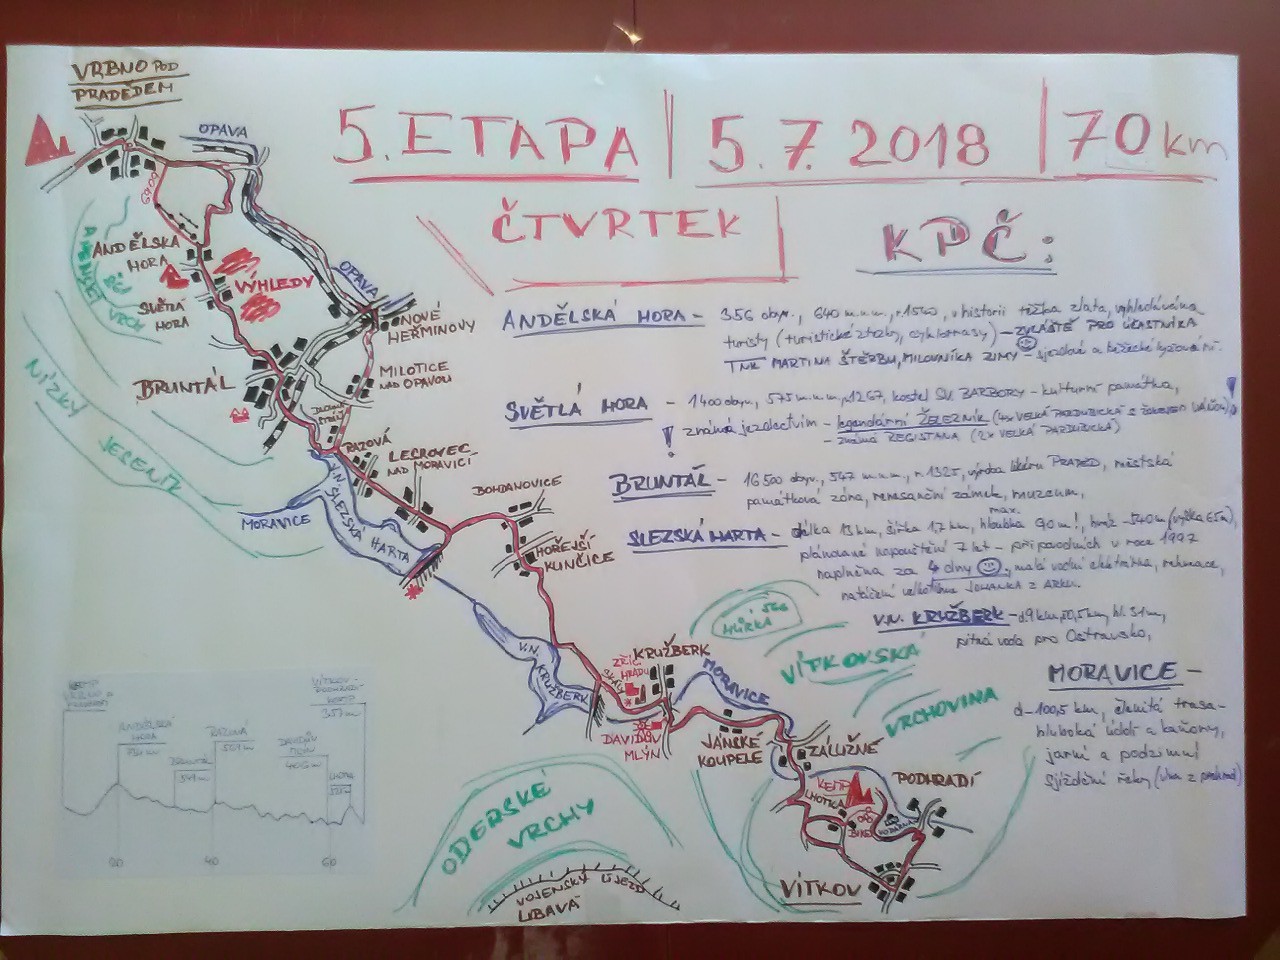 VRBNO POD
PRADĚDEM
5. ETAPA | 5.7. 2018 | 70 km
ČTVRTEK
KPČ:
OPAVA
ANDĚLSKÁ
HORA
SVĚTLÁ
HORA
VÝHLEDY
OPAVA
NOVÉ
HEŘMINOVY
MILOTICE
NAD OPAVOU
BRUNTÁL
NÍZKÝ
JESENÍK
RAZOVÁ
LESKOVEC
NAD MORAVICÍ
BOHDANOVICE
HOŘEJŠÍ
KUNČICE
MORAVICE
V.N. SLEZSKÁ HARTA
V.N. KRUŽBERK
ZŘÍC.
HRADU
KRUŽBERK
DAVIDŮV
MLÝN
MORAVICE
JÁNSKÉ
KOUPELE
ZÁLUŽNÉ
PODHRADÍ
KEMP
LHOTKA
BIKE
VÍTKOV
VÍTKOVSKÁ
VRCHOVINA
ODERSKÉ
VRCHY
VOJENSKÝ ÚJEZD
LIBAVÁ
ANDĚLSKÁ HORA – 356 obyv., 640 m.n.m., r. 1540, v historii těžba zlata, vyhledávána
turisty (turistické stezky, cyklotrasy) – ZVLÁŠTĚ PRO ÚČASTNÍKA
TNK MARTINA ŠTĚRBU, MILOVNÍKA ZIMY – sjezdové a běžecké lyžování.
SVĚTLÁ HORA – 1400 obyv., 575 m.n.m., r. 1267, kostel SV. BARBORY – kulturní památka,
známá jezdectvím – legendární ŽELEZNÍK (4x VELKÁ PARDUBICKÁ S VÁŇOU)!
– známá REGISTANA (2x VELKÁ PARDUBICKÁ)
BRUNTÁL – 16 500 obyv., 547 m.n.m., výroba likéru PRADĚD, městská
památková zóna, renesanční zámek, muzeum,
SLEZSKÁ HARTA – délka 13 km, šířka 1,7 km, max. hloubka 90 m!, hráz – 540 m (výška 65 m),
plánované napouštění 7 let – při povodních v roce 1997
naplněna za 4 dny, malá vodní elektrárna, rekreace,
natáčení velkofilmu JOHANKA Z ARKU.
V.N. KRUŽBERK – d. 9 km, 0,5 km, hl. 31 m,
pitná voda pro Ostravsko,
MORAVICE –
d – 100,5 km, členitá trasa –
hluboká údolí a kaňony,
jarní a podzimní
sjíždění řeky
KEMP
VRBNO P.
PRADĚDEM
ANDĚLSKÁ
HORA
BRUNTÁL
547 m
RAZOVÁ
DAVIDŮV
MLÝN
VÍTKOV -
PODHRADÍ
LHOTKA
20
40
60